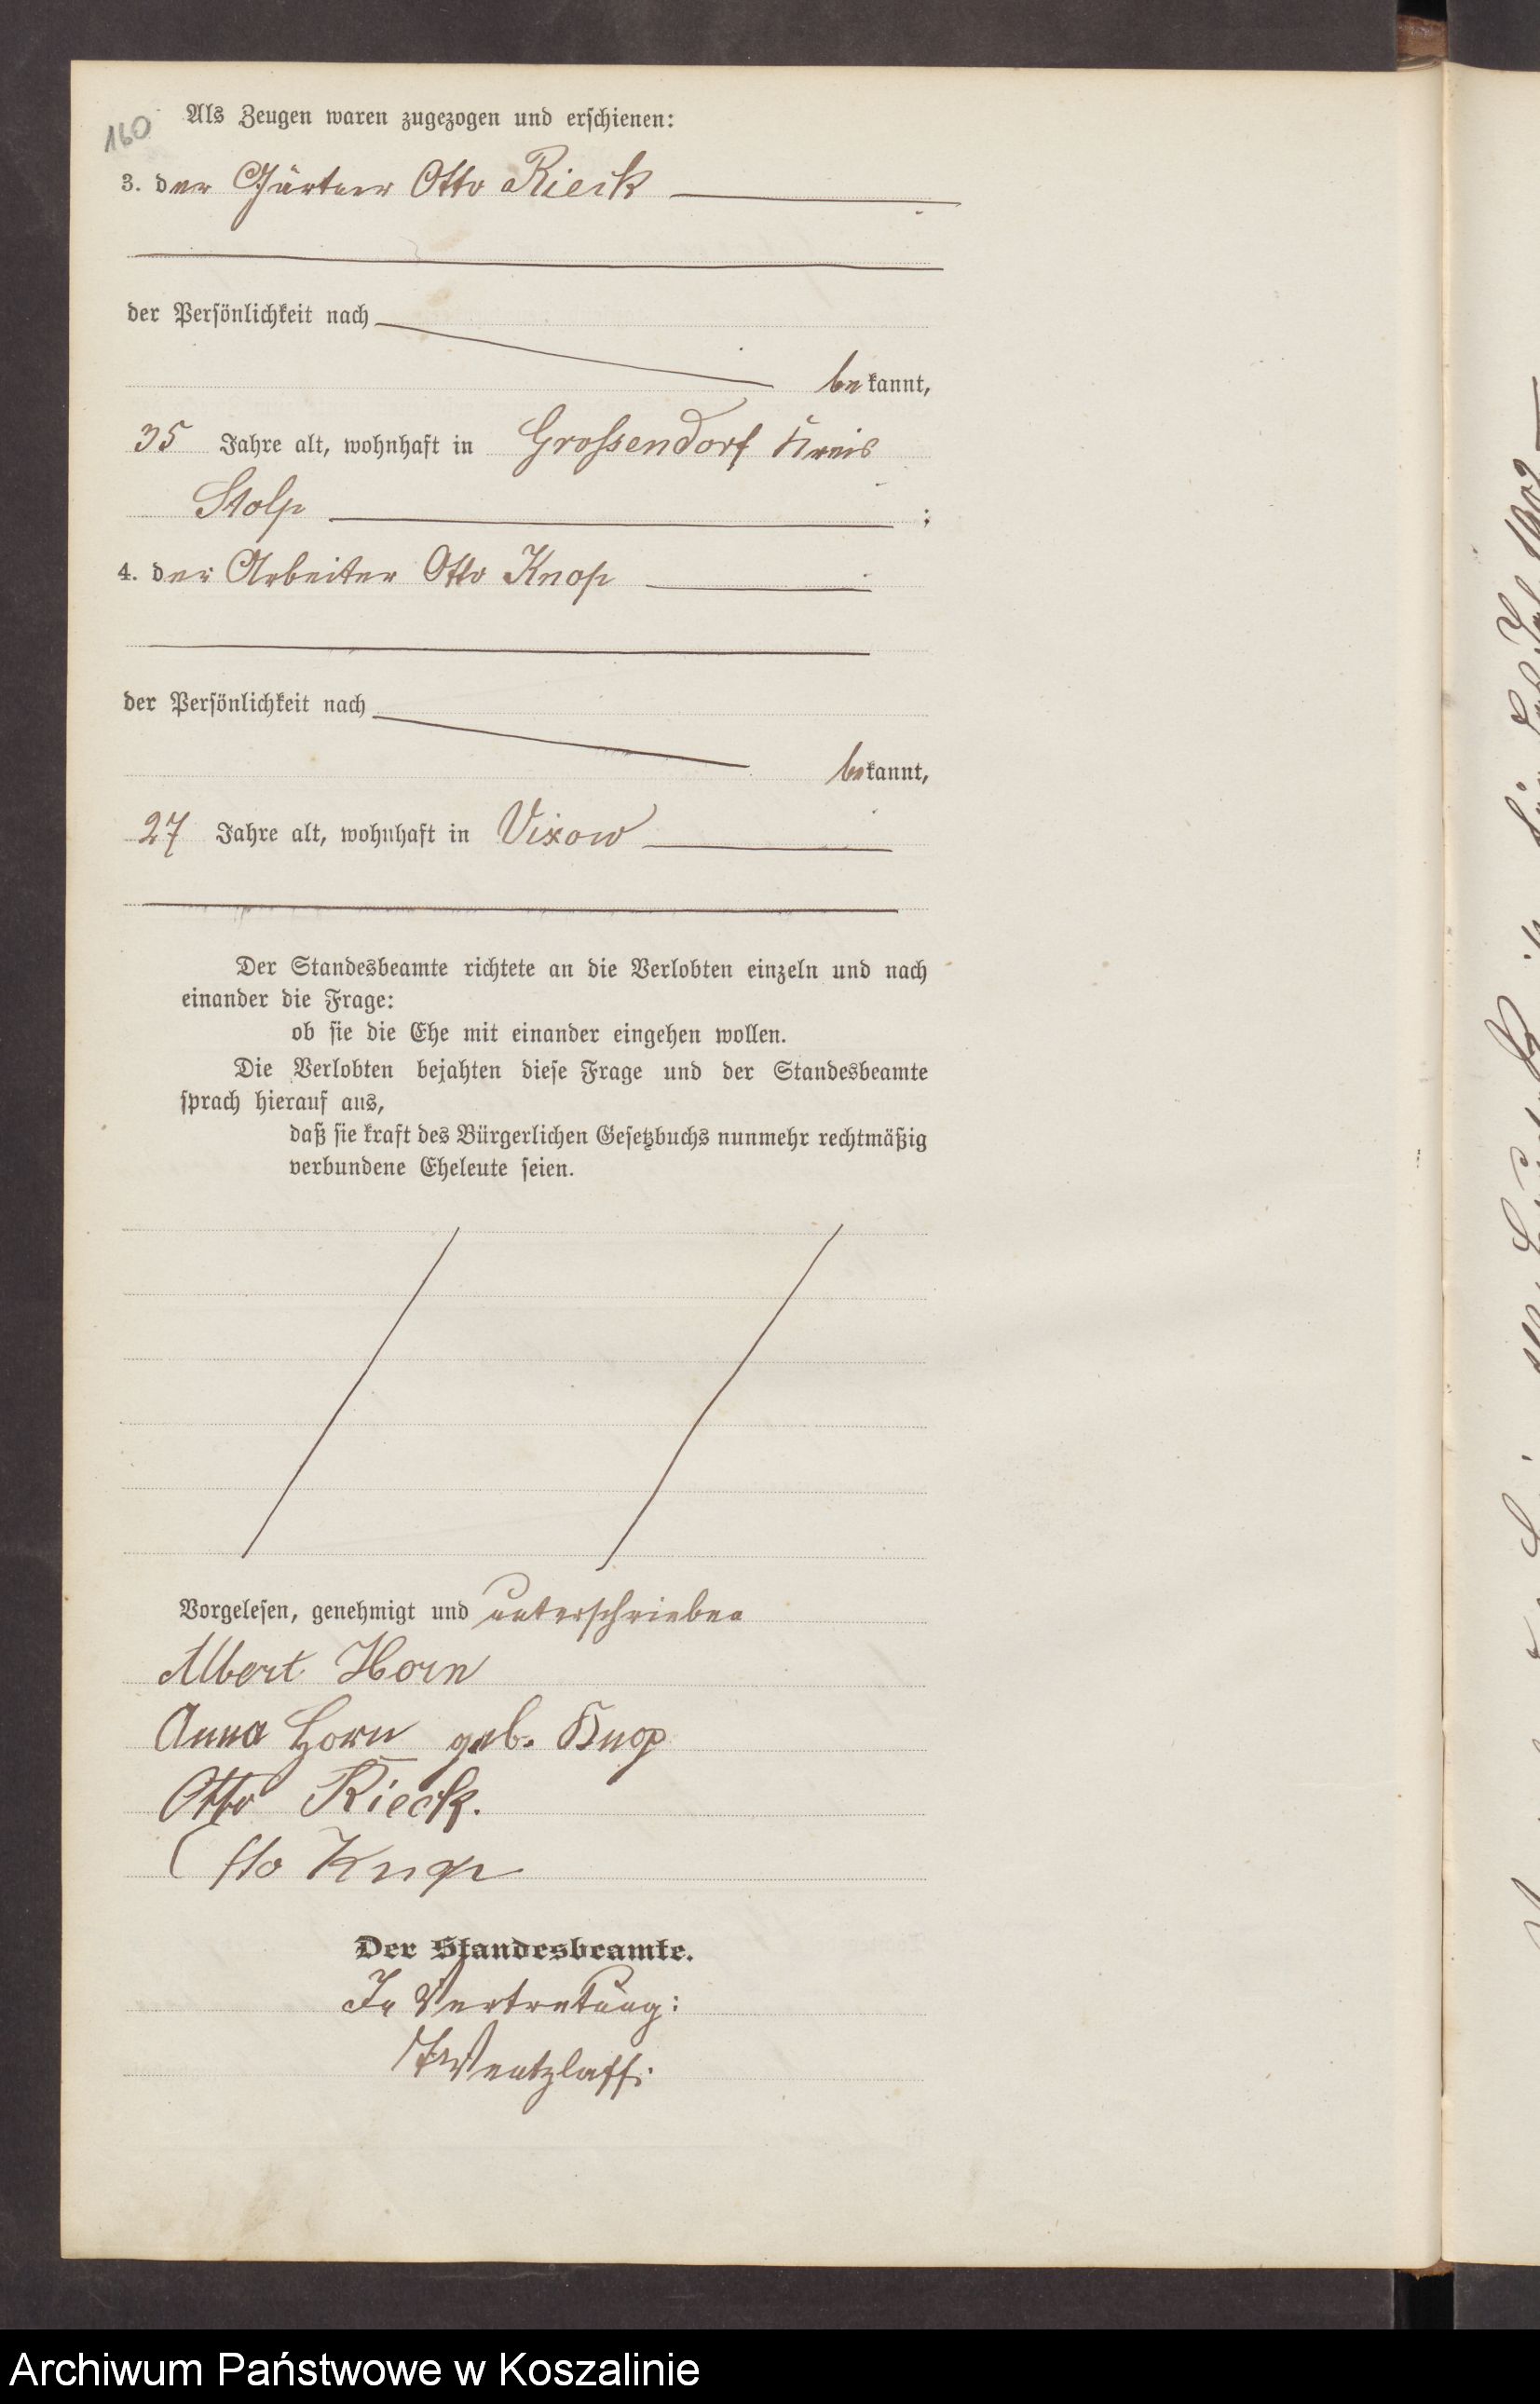 160
Als Zeugen waren zugezogen und erschienen:
3. der Gärtner Otto Rieck
der Persönlichkeit nach
bekannt,
35 Jahre alt, wohnhaft in Grossendorf Kreis
Stolp ;
4. der Arbeiter Otto Knop
der Persönlichkeit nach
bekannt,
27 Jahre alt, wohnhaft in Vixow
Der Standesbeamte richtete an die Verlobten einzeln und nach
einander die Frage:
ob sie die Ehe mit einander eingehen wollen.
Die Verlobten bejahten diese Frage und der Standesbeamte
sprach hierauf aus,
daß sie kraft des Bürgerlichen Gesetzbuchs nunmehr rechtmäßig
verbundene Eheleute seien.
Vorgelesen, genehmigt und unterschrieben
Albert Horn
Anna Horn geb. Knop
Otto Rieck.
Otto Knop
Der Standesbeamte.
In Vertretung:
Wentzlaff.
1902
Archiwum Państwowe w Koszalinie